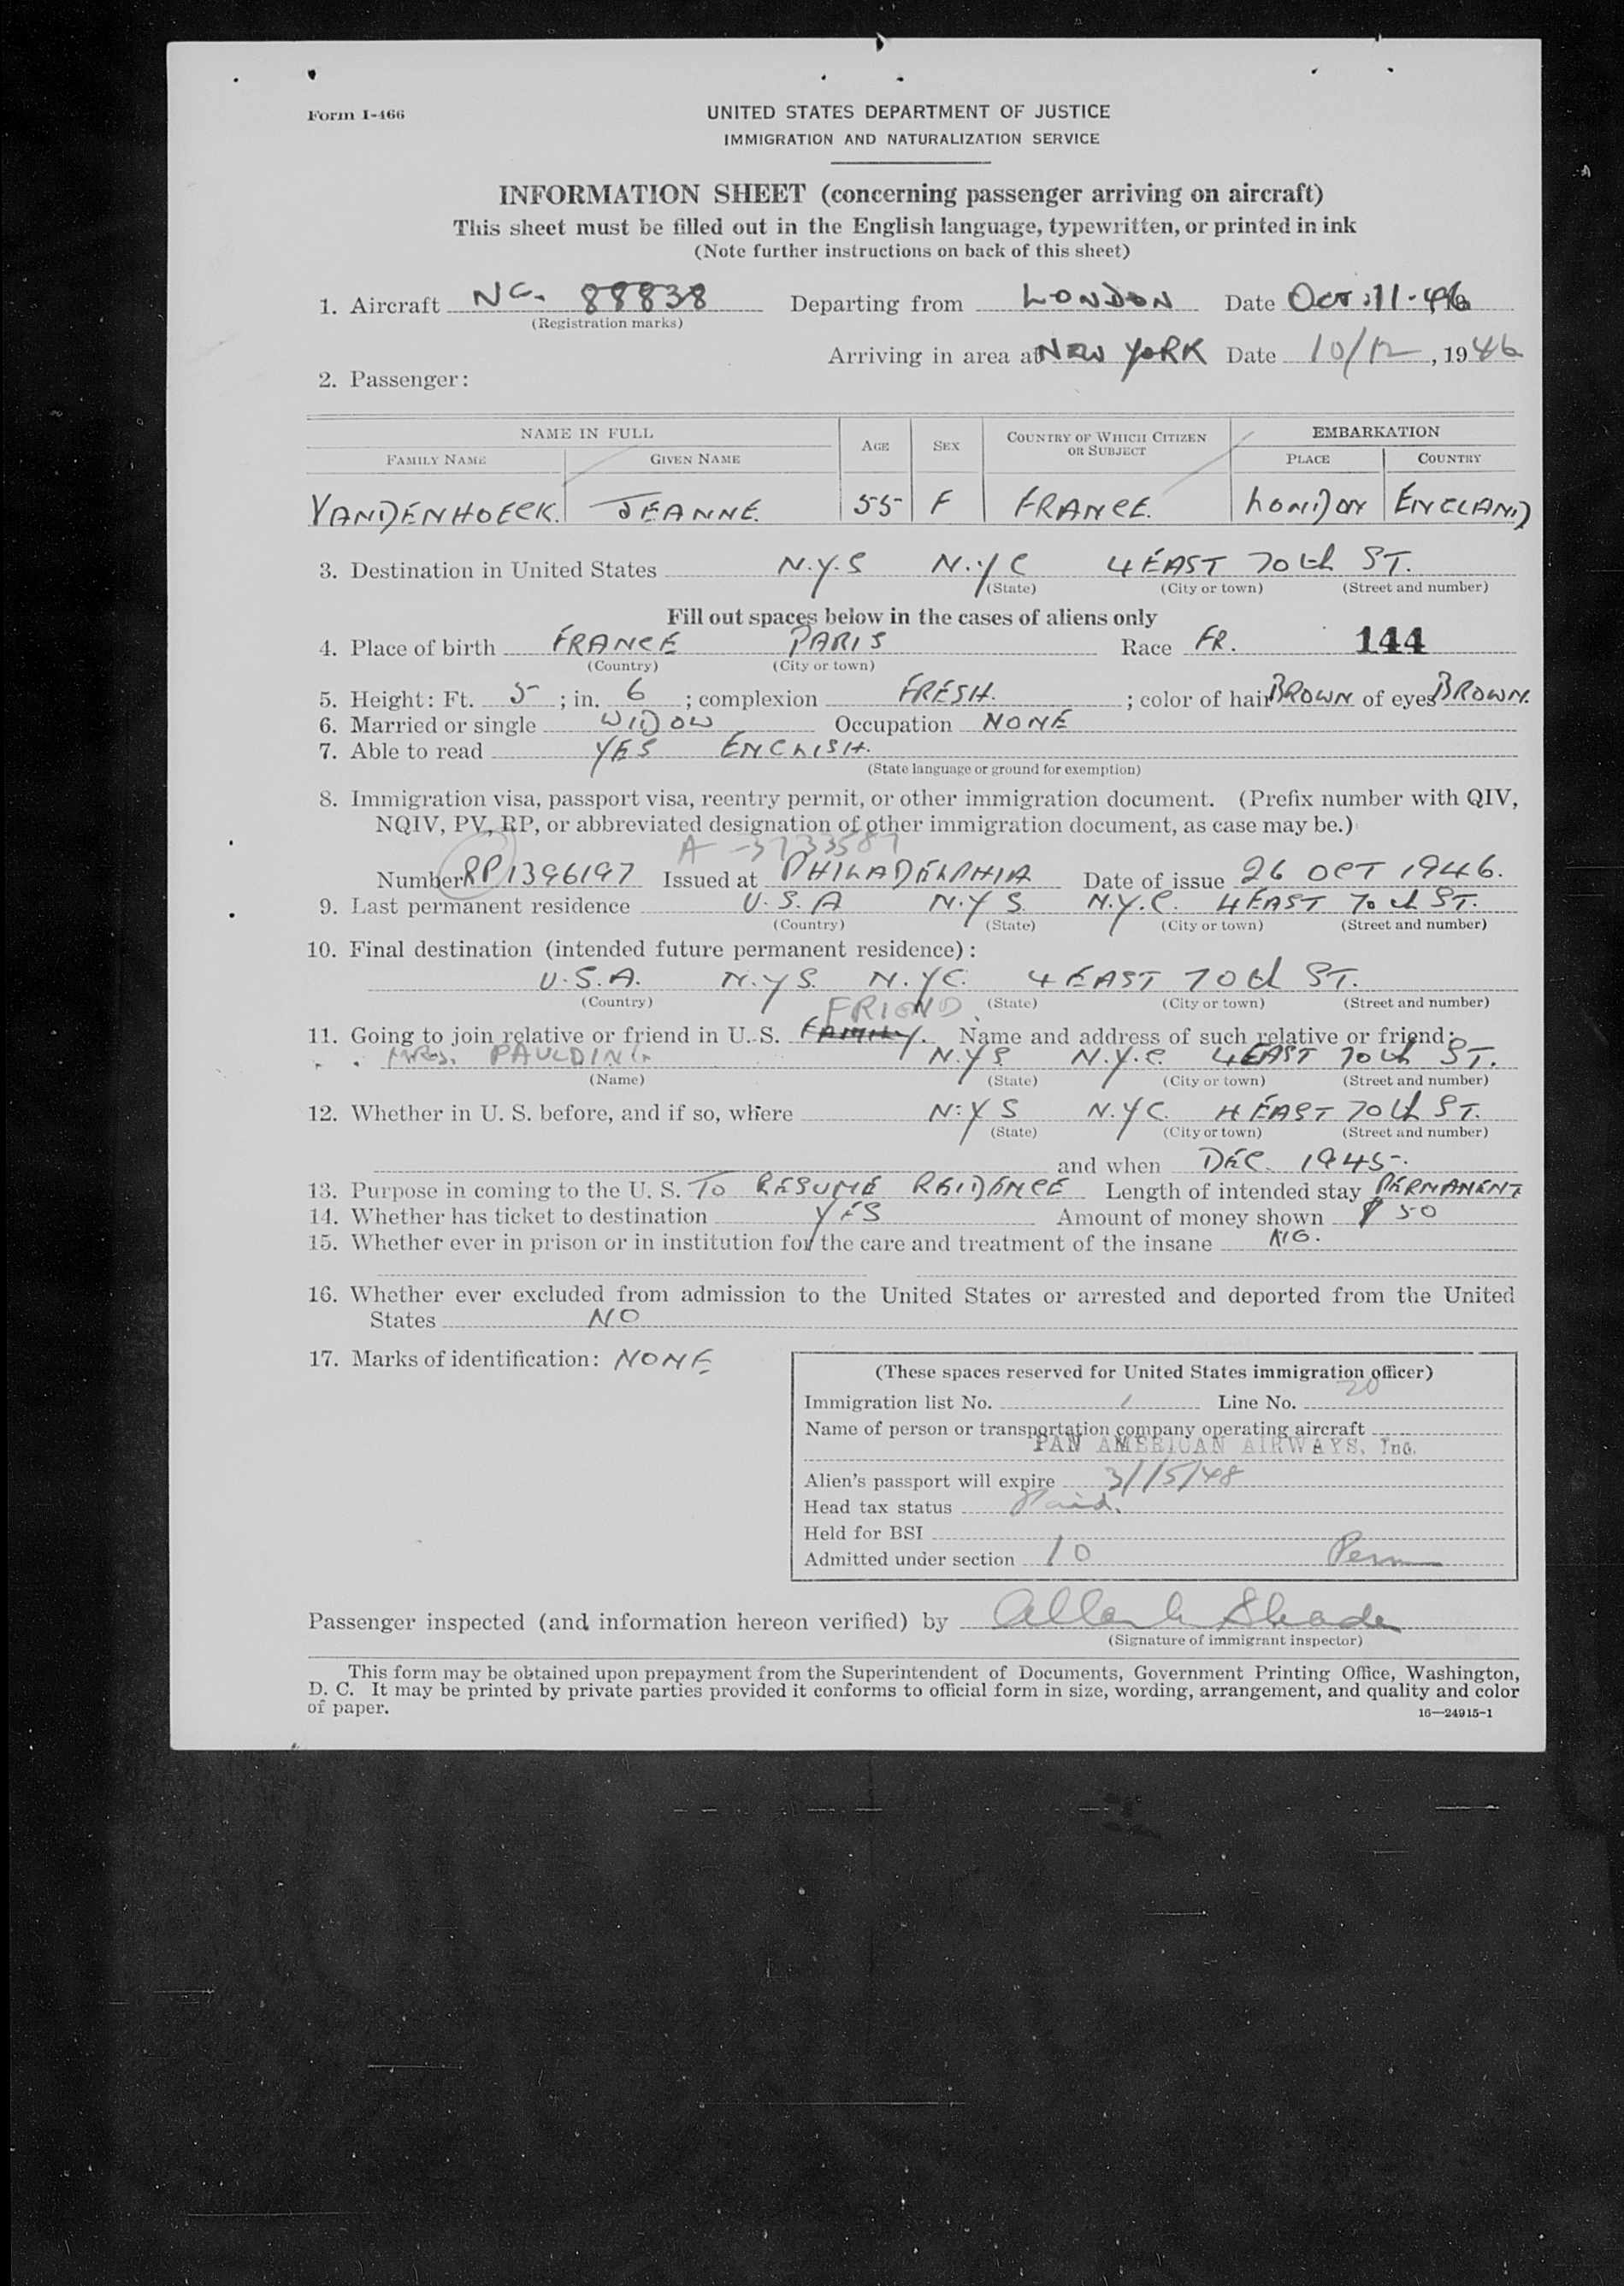 Form I-466
UNITED STATES DEPARTMENT OF JUSTICE
IMMIGRATION AND NATURALIZATION SERVICE
INFORMATION SHEET (concerning passenger arriving on aircraft)
This sheet must be filled out in the English language, typewritten, or printed in ink
(Note further instructions on back of this sheet)
1. Aircraft NC. 88838 Departing from LONDON Date Oct. 11-46
(Registration marks)
Arriving in area at NEW YORK Date 10/12, 1946
2. Passenger:
NAME IN FULL AGE SEX COUNTRY OF WHICH CITIZEN OR SUBJECT EMBARKATION
FAMILY NAME GIVEN NAME PLACE COUNTRY
VANDENHOECK. JEANNE. 55 F FRANCE. LONDON ENGLAND
3. Destination in United States N.Y.S N.Y C 4 EAST 70th ST.
(State) (City or town) (Street and number)
Fill out spaces below in the cases of aliens only
4. Place of birth FRANCE PARIS Race FR. 144
(Country) (City or town)
5. Height: Ft. 5 ; in. 6 ; complexion FRESH. ; color of hair BROWN of eyes BROWN.
6. Married or single WIDOW Occupation NONE
7. Able to read YES ENGLISH.
(State language or ground for exemption)
8. Immigration visa, passport visa, reentry permit, or other immigration document. (Prefix number with QIV,
NQIV, PV, RP, or abbreviated designation of other immigration document, as case may be.)
A-3733587
Number RP1396197 Issued at PHILADELPHIA Date of issue 26 OCT 1946.
9. Last permanent residence U.S.A N.Y S. N.Y.C. 4 EAST 70th ST.
(Country) (State) (City or town) (Street and number)
10. Final destination (intended future permanent residence):
U.S.A. N.Y S. N.Y C. 4 EAST 70th ST.
(Country) (State) (City or town) (Street and number)
FRIEND
11. Going to join relative or friend in U. S. FAMILY. Name and address of such relative or friend:
MRS. PAULDING N.Y S N.Y.C. 4 EAST 70th ST.
(Name) (State) (City or town) (Street and number)
12. Whether in U. S. before, and if so, where N.Y S N.Y C. 4 EAST 70th ST.
(State) (City or town) (Street and number)
and when DEC. 1945.
13. Purpose in coming to the U. S. TO RESUME REIDENCE Length of intended stay PERMANENT
14. Whether has ticket to destination YES Amount of money shown $ 50
15. Whether ever in prison or in institution for the care and treatment of the insane NO.
16. Whether ever excluded from admission to the United States or arrested and deported from the United
States NO
17. Marks of identification: NONE
(These spaces reserved for United States immigration officer)
Immigration list No. 1 Line No. 20
Name of person or transportation company operating aircraft
PAN AMERICAN AIRWAYS, Inc.
Alien's passport will expire 3/15/48
Head tax status Paid.
Held for BSI
Admitted under section 10 Perm
Passenger inspected (and information hereon verified) by
(Signature of immigrant inspector)
This form may be obtained upon prepayment from the Superintendent of Documents, Government Printing Office, Washington,
D. C. It may be printed by private parties provided it conforms to official form in size, wording, arrangement, and quality and color
of paper.
16—24915-1